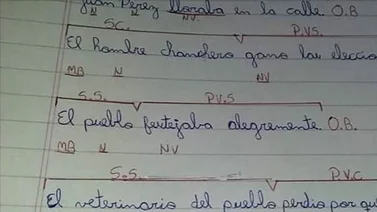 Juan Perez lloraba en la calle O.B
N N NV
SC. P.VS.
El hombre chanchero gano las eleccio
MB N NV
S.S. P.V.S
El pueblo festejaba alegremente. O.B.
MB N NV
S.S. P.V.C
El veterinario del pueblo perdio por qu